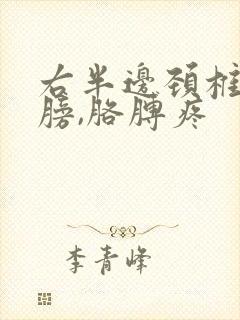 右半邊頚椎
膀,胳膊疼
李青峰